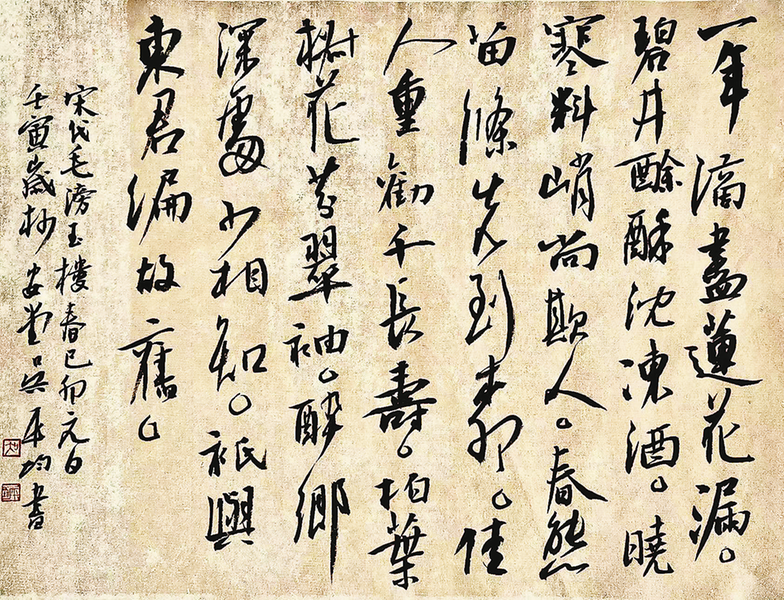 一年滴盡蓮花漏。
碧井酴酥沈凍酒。曉
寒料峭尚欺人。春態
苗條先到柳。佳
人重勸千長壽。柏葉
椒花芬翠袖。醉鄉
深處少相知。祇與
東君編故舊。
宋代毛滂玉樓春己卯元日
壬寅歲杪 吳 均書